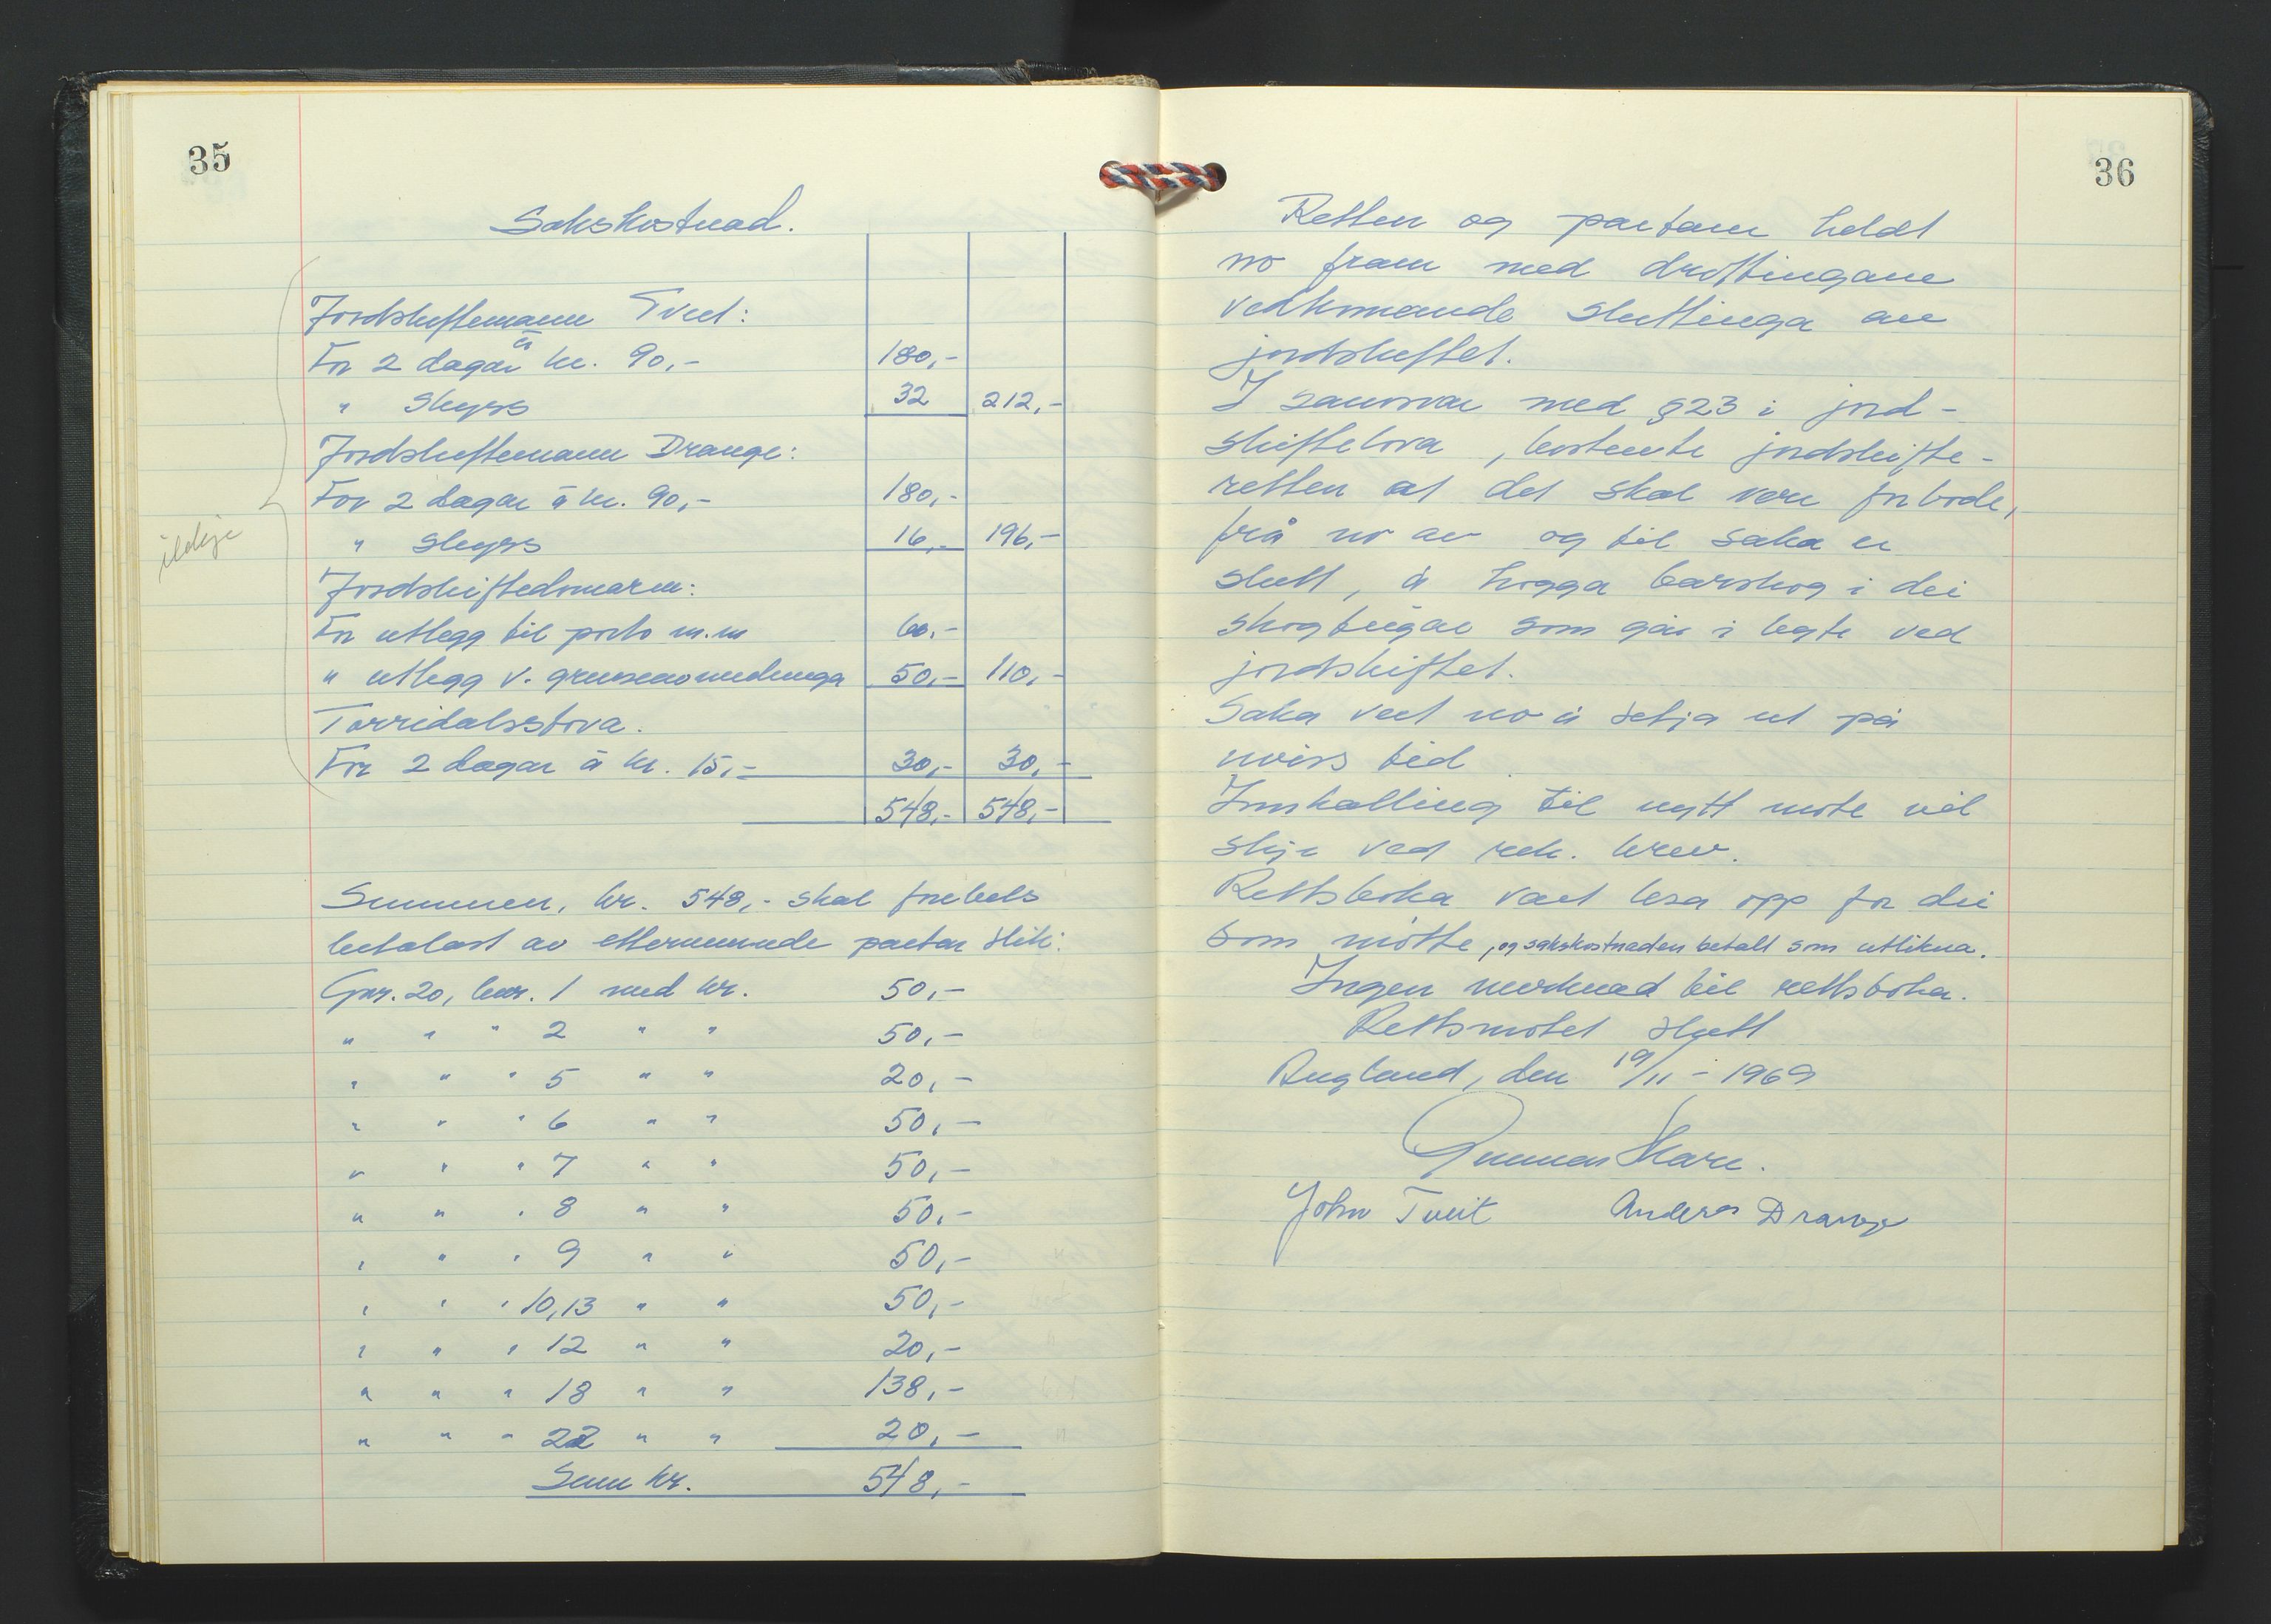 35
Sakskostnad.
Jordskiftemann Tveit:
For 2 dagar à kr. 90,- 180,-
" Skyss 32 212,-
Jordskiftemann Drange:
For 2 dagar à kr. 90,- 180,-
" Skyss 16,- 196,-
Jordskiftedomaren:
For utlegg til porto m.m 60,-
" utlegg v. 50,- 110,-
Torridalsstova.
For 2 dagar à kr. 15,- 30,- 30,-
548,- 548,-
Summen, kr. 548,- skal førebels
betalast av etternemnde partar slik:
Gnr. 20, bnr. 1 med kr. 50,-
" " " 2 " " 50,-
" " " 5 " " 20,-
" " " 6 " " 50,-
" " " 7 " " 50,-
" " " 8 " " 50,-
" " " 9 " " 50,-
" " " 10,13 " " 50,-
" " " 12 " " 20,-
" " " 18 " " 138,-
" " " 22 " " 20,-
Sum kr. 548,-
36
Retten og partane heldt
no fram med drøftingane
vedkomande sluttinga av
jordskiftet.
I samsvar med §23 i jord-
skiftelova, bestemte jordskifte-
retten at det skal vere forbode,
frå no av og til saka er
slutt, å hogga barskog i dei
skogteigar som går i byte ved
jordskiftet.
Saka vert no å setja ut på
uviss tid
Innkalling til nytt møte vil
skje ved rek. brev.
Rettsboka vart lesa opp for dei
som møtte, og sakskostnaden betalt som utlikna.
Ingen merknad til rettsboka.
Rettsmøtet slutt
Augland, den 19/11 - 1969
Gunnar Skare.
John Tveit Anders Drange